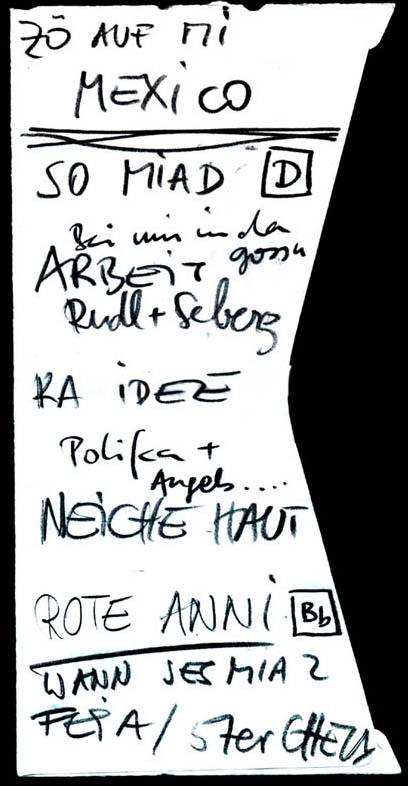 ZÖ AUF MI
MEXiCO
SO MiAD D
Bei mir in da
gossn
ARBEiT
Rudl + Seberg
KA iDEE
Polifka +
Angels....
NEiCHE HAUT
ROTE ANNi Bb
WANN SES MIA 2
FEPA / 57er GHETTO